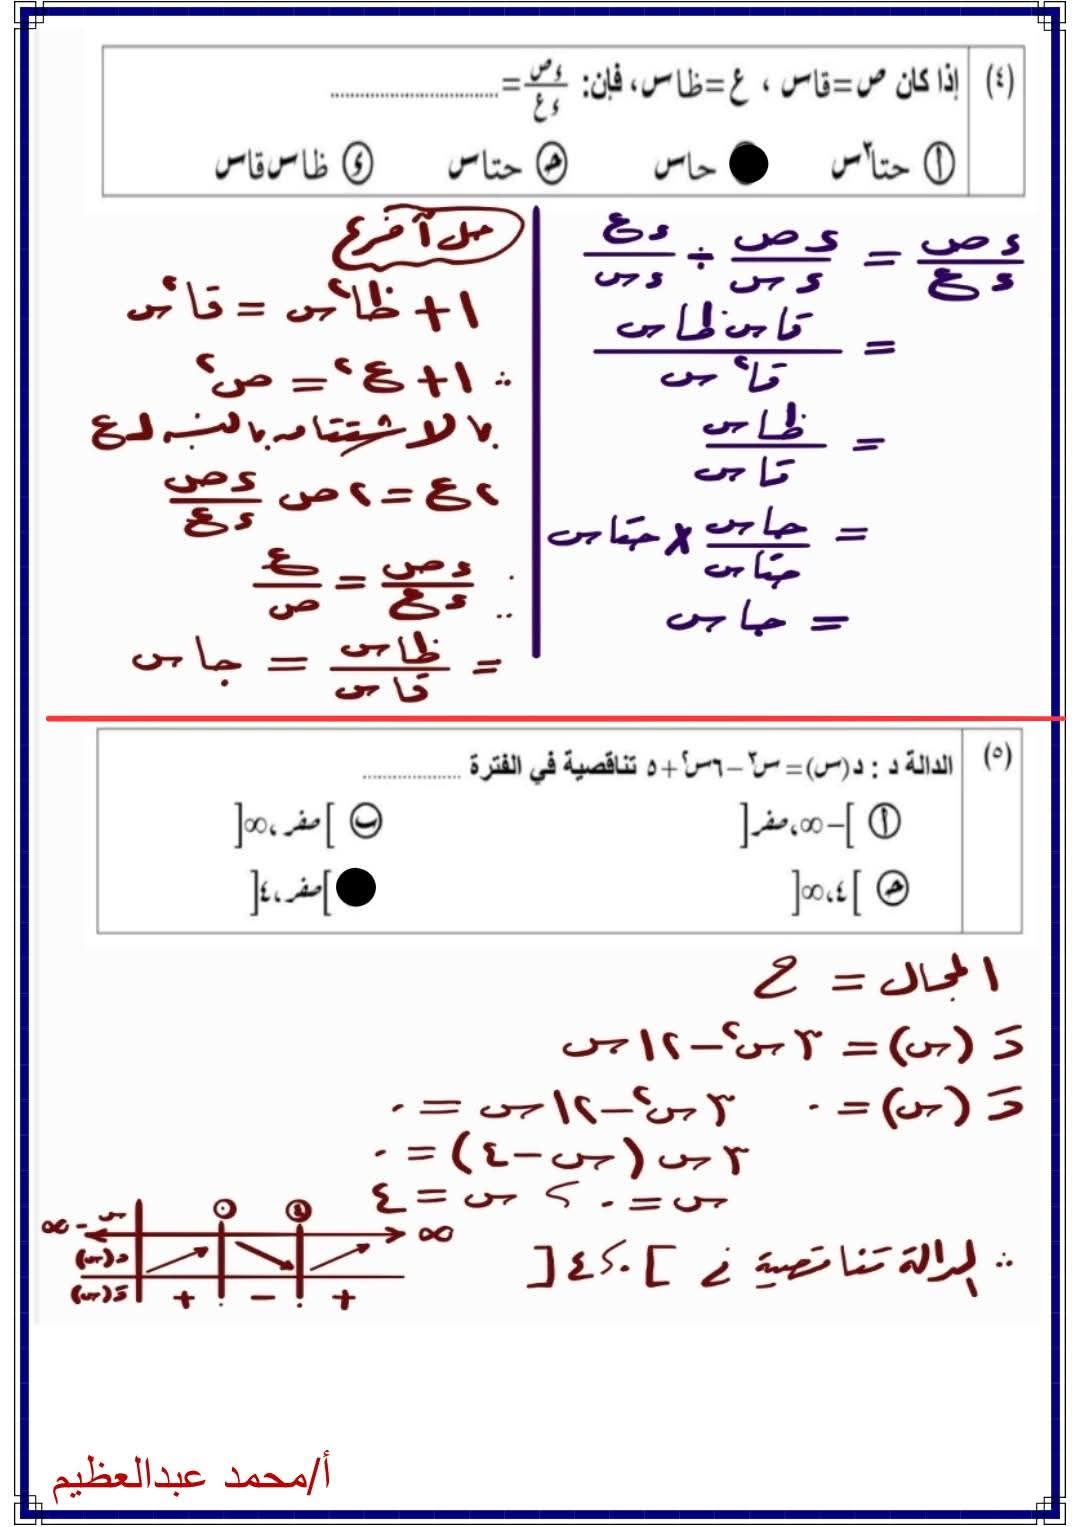 (٤) إذا كان ص=قاس ، ع=ظاس، فإن: ءص/ءع =..................
أ حتا٣س ● حاس حـ حتاس ء ظاس قاس
ءص/ءع = ءص/ءس ÷ ءع/ءس
= قاس ظاس/قا٢س
= ظاس/قاس
= جاس/جتاس × جتاس
= جاس
حل آخر ٤
١+ ظا٢س = قا٢س
∴ ١+ ع٢ = ص٢
بالاشتقاق بالنسبه لـ ع
٢ع = ٢ص ءص/ءع
∴ ءص/ءع = ع/ص
= ظاس/قاس = جاس
(٥) الدالة د : د(س)= س٣ –٦س٢+ ٥ تناقصية في الفترة ..................
أ ]–∞،صفر[ ب ]صفر،∞[
حـ ]٤،∞[ ● ]صفر،٤[
المجال = ح
دَ (س) = ٣س٢ – ١٢س
دَ (س) = ٠ ٣س٢ – ١٢س = ٠
٣س (س – ٤) = ٠
س = ٠ ، س = ٤
∴ الدالة تناقصية في ]٠،٤[
س -∞ ٠ ٤ ∞
د(س)
دَ(س) + ٠ – ٠ +
أ/محمد عبدالعظيم